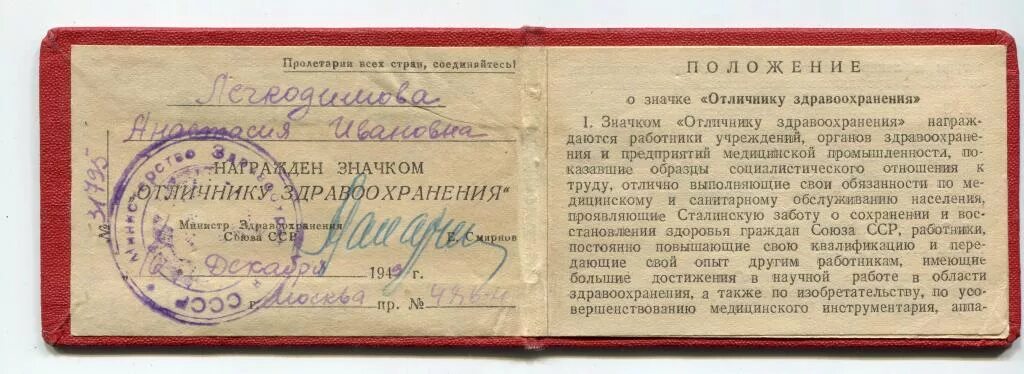 Пролетарии всех стран, соединяйтесь!
Легкодимова
Анастасия Ивановна
НАГРАЖДЕН ЗНАЧКОМ
"ОТЛИЧНИКУ ЗДРАВООХРАНЕНИЯ"
№ 31795
Министр Здравоохранения
Союза ССР
Е. Смирнов
Декабря 194 г.
г. Москва пр. №
СССР
ПОЛОЖЕНИЕ
о значке «Отличнику здравоохранения»
1. Значком «Отличнику здравоохранения» награж-
даются работники учреждений, органов здравоохране-
ния и предприятий медицинской промышленности, по-
казавшие образцы социалистического отношения к
труду, отлично выполняющие свои обязанности по ме-
дицинскому и санитарному обслуживанию населения,
проявляющие Сталинскую заботу о сохранении и вос-
становлении здоровья граждан Союза ССР, работники,
постоянно повышающие свою квалификацию и пере-
дающие свой опыт другим работникам, имеющие
большие достижения в научной работе в области
здравоохранения, а также по изобретательству, по усо-
вершенствованию медицинского инструментария, аппа-